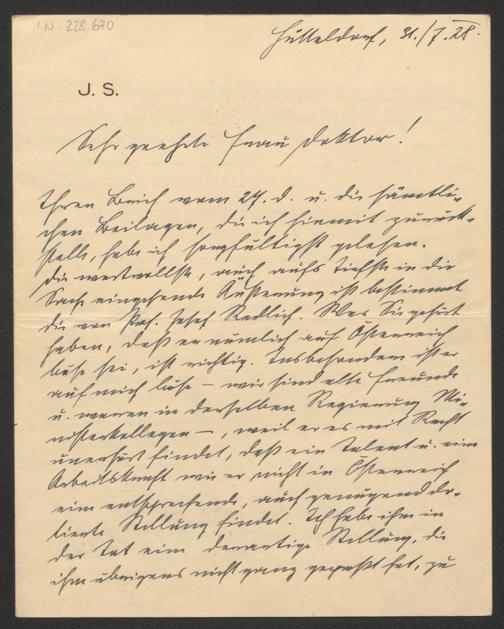 I.N. 228 670
Hütteldorf, 31./7.28.
J. S.
Sehr geehrte Frau Doktor!
Ihren Brief vom 24. d. u. die sämtli-
chen Beilagen, die ich hiemit zurück-
stelle, habe ich sorgfältigst gelesen.
Die wertvollste, auch aufs tiefste in die
Sache eingehende Äußerung ist bestimmt
die von Prof. Josef Redlich. Was Sie gehört
haben, daß er nämlich auf Österreich
böse sei, ist richtig. Insbesondere ist er
auf mich böse – wir sind alte Freunde
u. waren in derselben Regierung Mi-
nisterkollegen –, weil er es mit Recht
unerhört findet, daß ein Talent u. eine
Arbeitskraft wie er nicht in Österreich
eine entsprechende, auch genügend do-
tierte Stellung findet. Ich habe ihm in
der Tat eine derartige Stellung, die
ihm übrigens nicht ganz gepaßt hat, zu